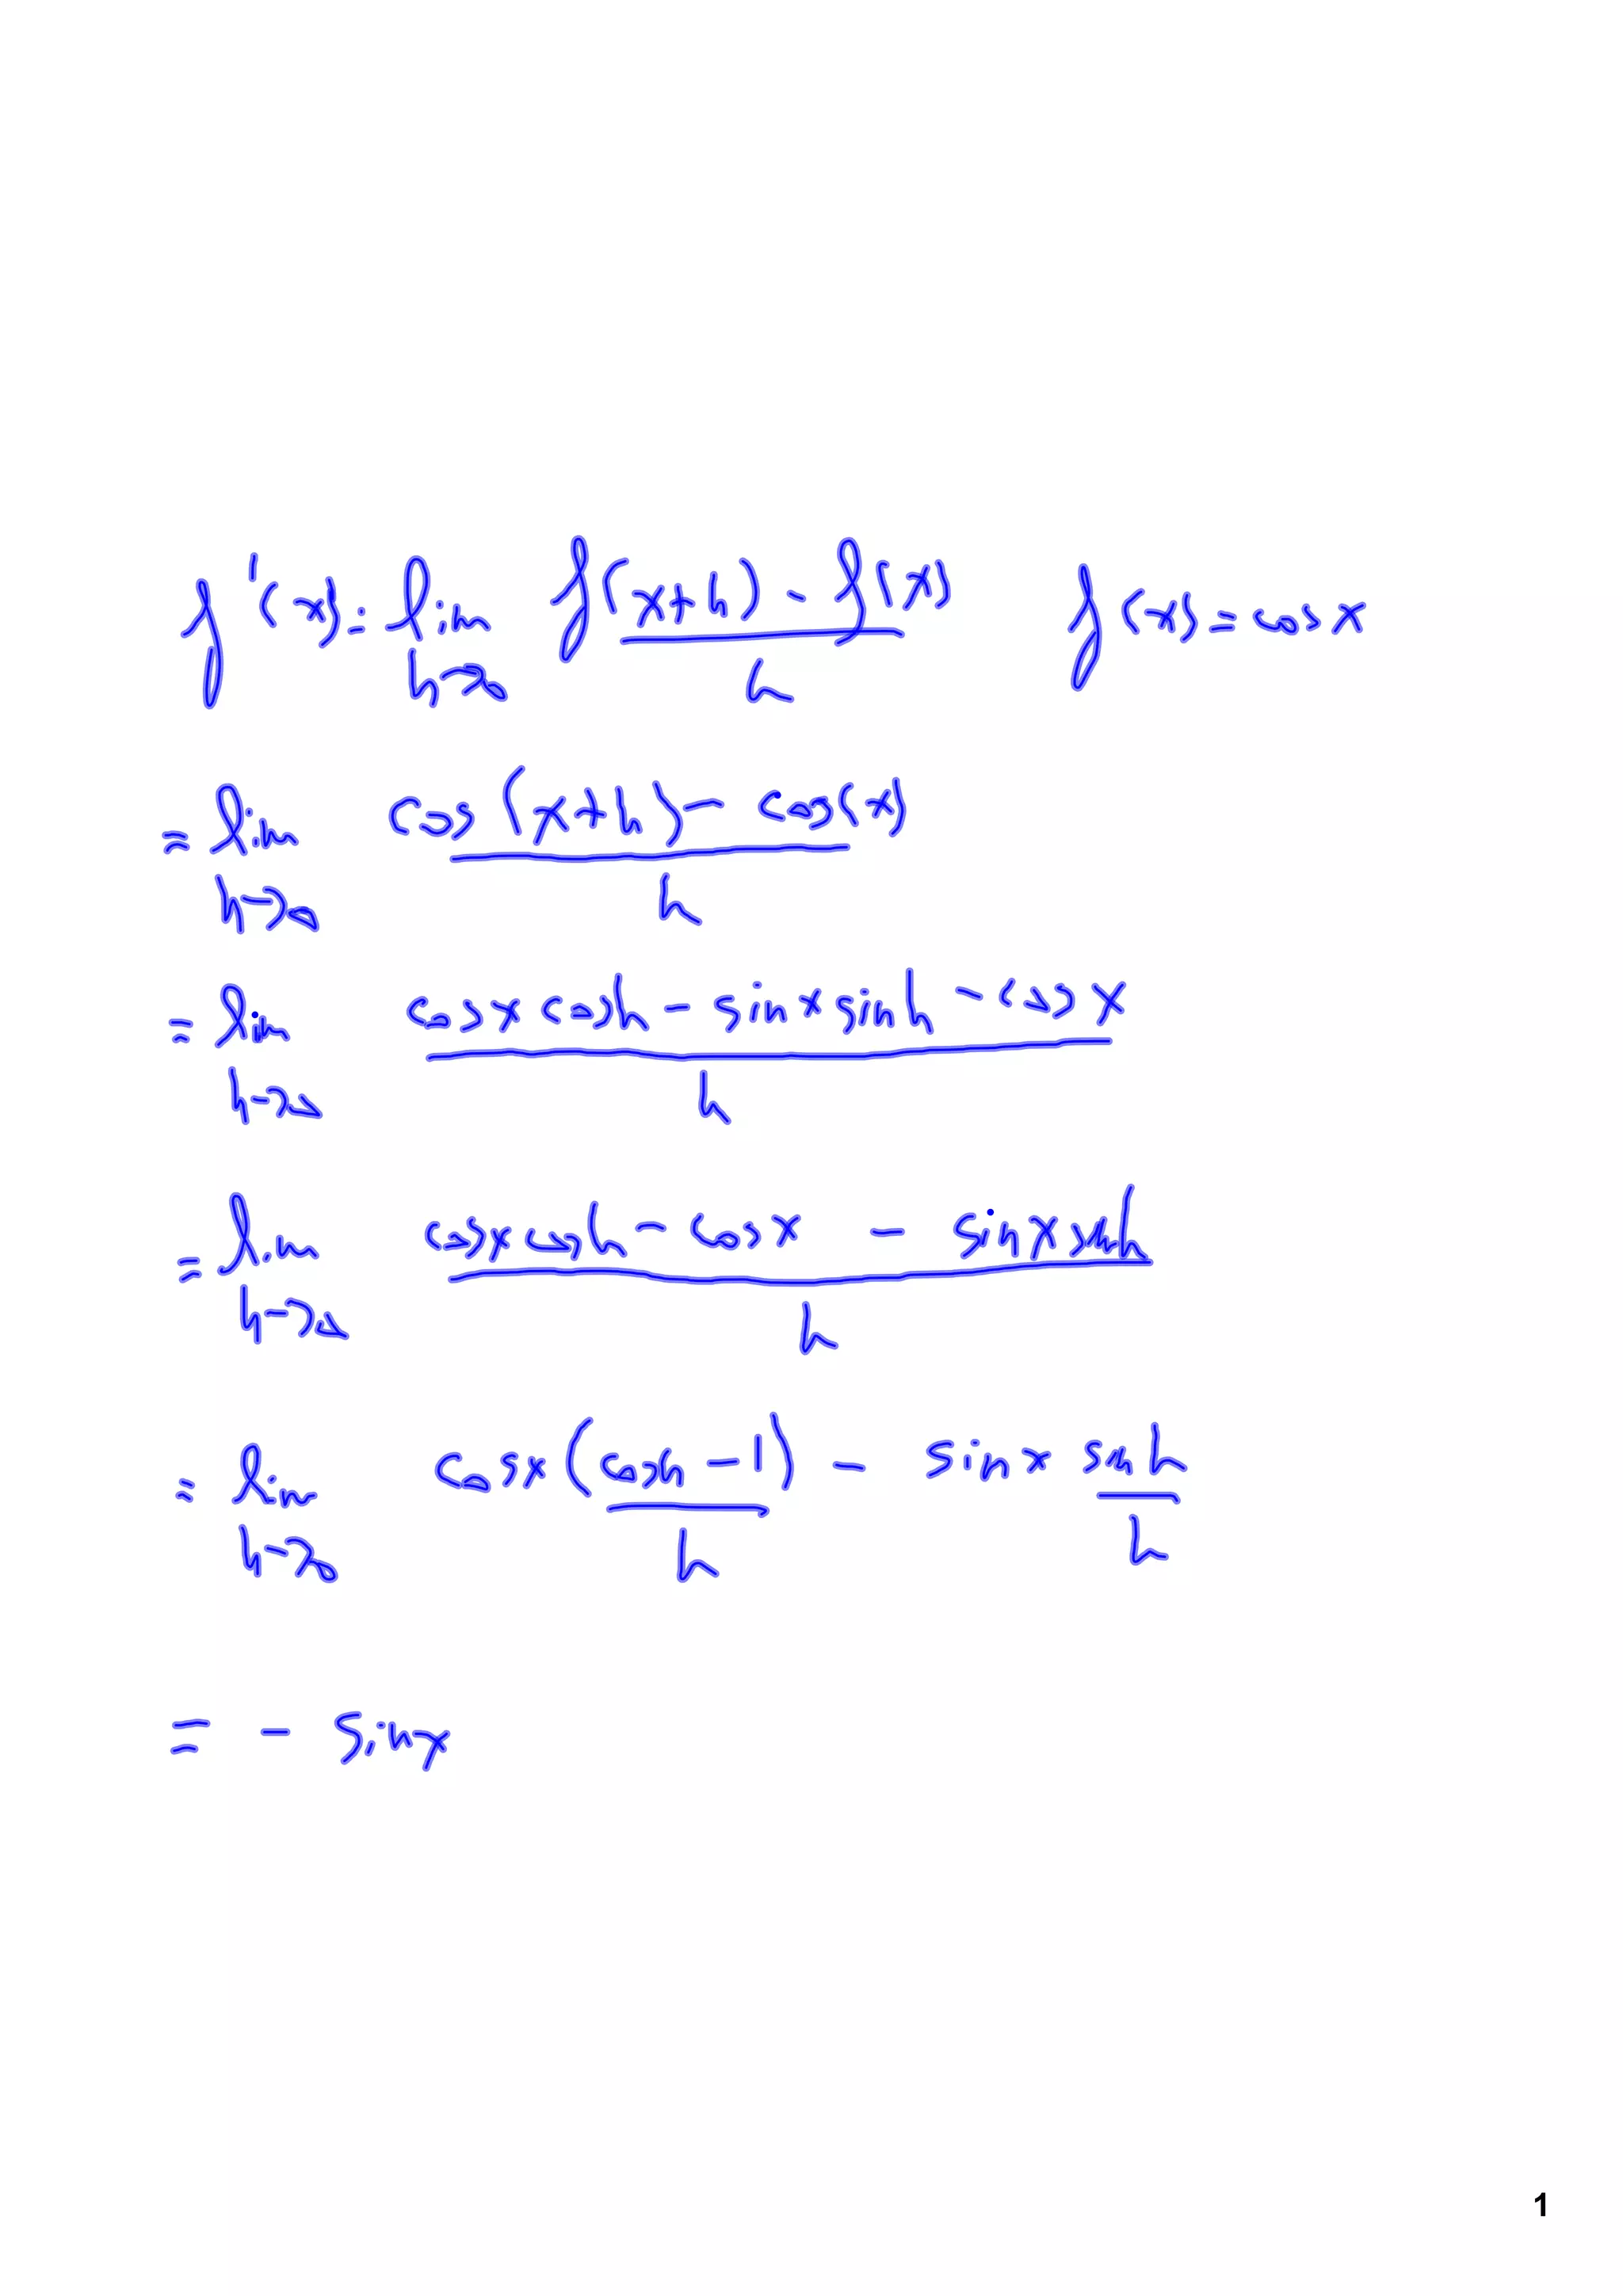 f'(x) = lim h→0 (f(x+h) - f(x))/h f(x) = cos x
= lim h→0 (cos(x+h) - cos(x))/h
= lim h→0 (cos x cos h - sin x sin h - cos x)/h
= lim h→0 (cos x cos h - cos x - sin x sin h)/h
= lim h→0 cos x (cos h - 1)/h - sin x sin h/h
= - sin x
1